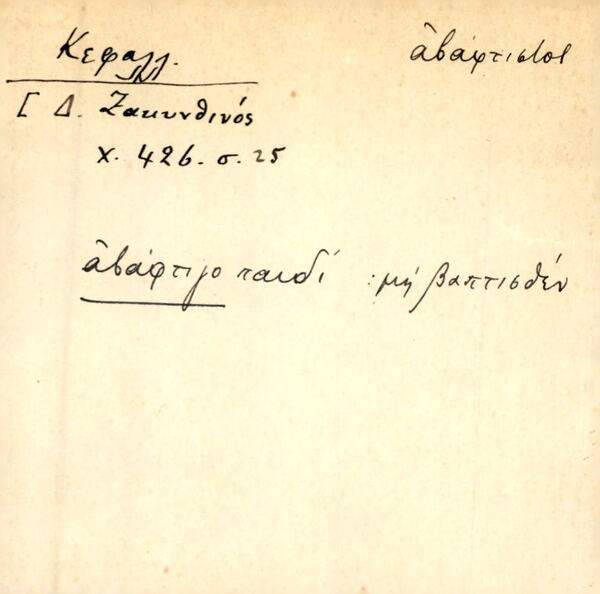 Κεφαλλ.
ἀβάφτιστος
[ Δ. Ζακυνθινός
χ. 426. σ. 25
ἀβάφτιγο παιδί : μή βαπτισθέν